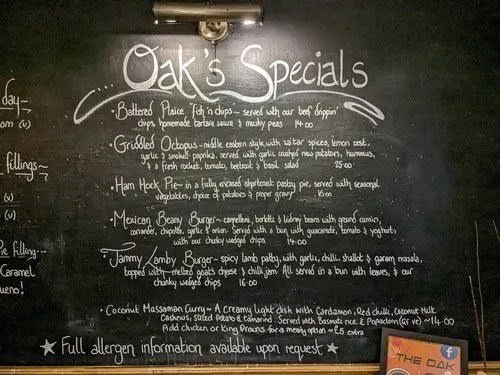 Oak's Specials
• Battered Plaice 'fish n chips' ~ served with our beef drippin'
chips, homemade tartare sauce & mushy peas 14.00
• Griddled Octopus ~ middle eastern style with za'tar spices, lemon zest,
garlic & smoked paprika, served with garlic crushed new potatoes, hummus,
& a fresh rocket, tomato, beetroot & basil salad 25.00
• Ham Hock Pie ~ in a fully encased shortcrust pastry pie, served with seasonal
vegetables, choice of potatoes & proper gravy 16.00
• Mexican Beany Burger ~ cannellini, borlotti & kidney beans with ground cumin,
coriander, chipotle, garlic & onion. Served with a bun with guacamole, tomato & yoghurt,
with our chunky wedged chips 14.00
• Jammy Lamby Burger ~ spicy lamb patty, with garlic, chilli, shallot & garam masala,
topped with melted goats cheese & chilli jam. All served in a bun with leaves, & our
chunky wedged chips 16.00
• Coconut Massaman Curry ~ A creamy light dish with Cardamon, Red chilli, Coconut Milk,
Cashews, sliced Potato & tamarind. Served with Basmati rice & Papadom (GF VE) ~ 14.00
Add chicken or King Prawns for a meaty option ~ £5 extra
★ Full allergen information available upon request ★
day ~
(v)
fillings ~
(v)
(v)
Pie filling...
Caramel
ueno!
f
THE OAK